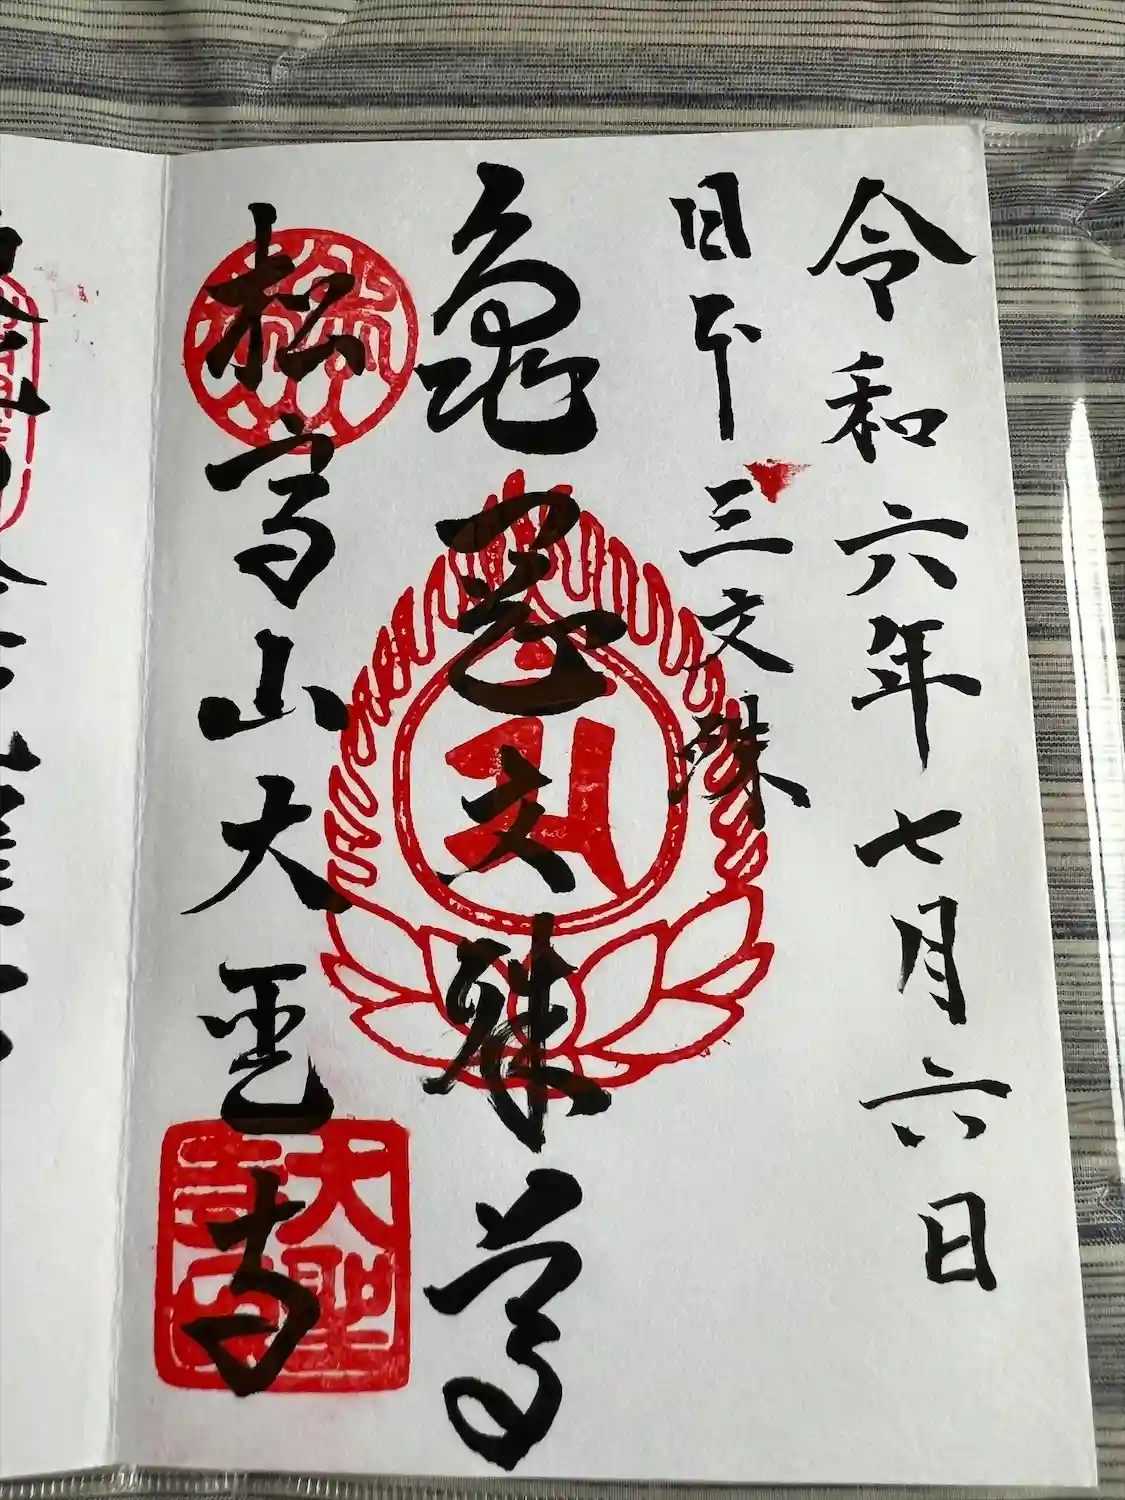 令和六年七月六日
日本三文殊
亀岡文殊尊
松高山大聖寺
大聖
寺印